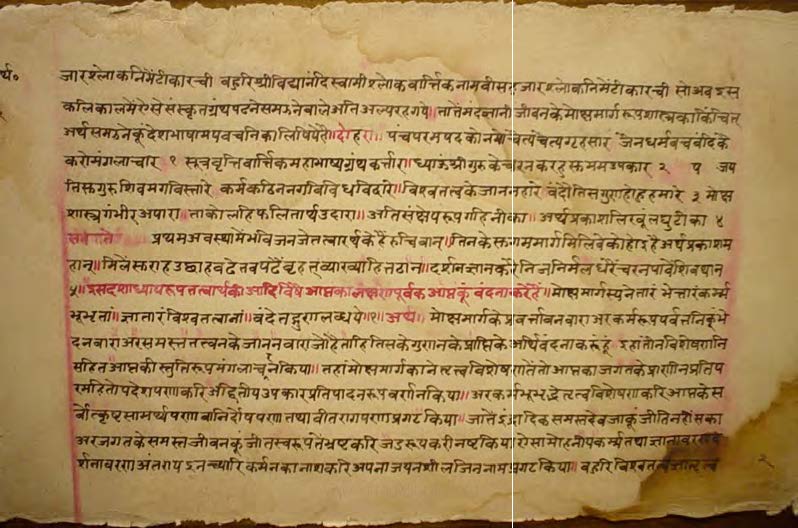 र्थ०
जार श्लोकनिमें टीका रची बहुरि श्री विद्यानंदि स्वामी श्लोकवार्त्तिक नाम बीस हजार श्लोकनिमें टीका रची सो अब इस
कलिकालमें ऐसे संस्कृत ग्रंथ पढने समझनेवाले अति अल्प रह गये॥ तातें मंदज्ञानी जीवनके मोक्षमार्गरूप शास्त्रका किंचित्
अर्थ समझनेकूं देशभाषामय वचनिका लिखिये है॥ दोहरा॥ पंच परम पद जैन धर्म
करो मंगलाचार १ वार्त्तिक महाभाष्य ग्रंथ ध्याऊं श्री गुरुके २
गुरु शिवमग विस्तारे कर्म कठिन नग विविध विदारे॥ विश्वतत्वके जाननहारे वंदौ तिस गुण होहु हमारे ३ मोक्ष
शास्त्र गंभीर अपारा॥ ताको लहि फलितार्थ उदारा॥ अति संक्षेप रूप गहि नीका॥ अर्थप्रकाश लिखू लघु टीका ४
प्रथम अवस्थामें भविजन जे तत्वारथके है रुचिवान्॥ तिनके मार्ग मिलिवेको अर्थप्रकाश म
हान्॥ दर्शन ज्ञान निज निर्मल धरै चरन पावै शिवथान
५॥ इस दशाध्यायरूप तत्वार्थका आदि विषें आप्तका लक्षण पूर्वक आप्तकूं वंदना करे हैं॥ मोक्षमार्गस्य नेतारं भेत्तारं कर्म्म
भूभृतां॥ ज्ञातारं विश्वतत्वानां॥ वंदे तद्गुणलब्धये॥१॥ अर्थ॥ मोक्षमार्गके प्रवर्त्तावनवारा अर कर्मरूप पर्वतनिकूं भे
दनवारा अर समस्त तत्वनके जाननवारा जो है ताहि तिसके गुणनके प्राप्तिके अर्थि वंदना करूं हूं इहां तीन विशेषणनि
सहित आप्तकी स्तुतिरूप मंगलाचर्न किया॥ तहां मोक्षमार्गका नेतृत्व विशेषण तें तो आप्तका जगतके प्राणीन प्रति प
रम हितोपदेशपणा करि अद्वितीय उपकार प्रतिपादनरूप वर्णन किया॥ अर कर्म भूभृद्भेतृत्व विशेषण करि आप्तके स
र्वोत्कृष्ट सामर्थ्यपणा वा निर्दोषपणा तथा वीतरागपणा प्रगट किया॥ जातें इंद्रादिक समस्त देव जाकूं जीति नही सका
अर जगतके समस्त जीवनकूं निज स्वरूप तें भ्रष्ट करि जडरूप करी नष्ट किया ऐसा मोहनीय कर्म्म तथा ज्ञानावरण द
र्शनावरण अंतराय इन च्यारि कर्मनका नाश करि अपना जयनशील जिन नाम प्रगट किया॥ बहुरि विश्वतत्व ज्ञातृत्व